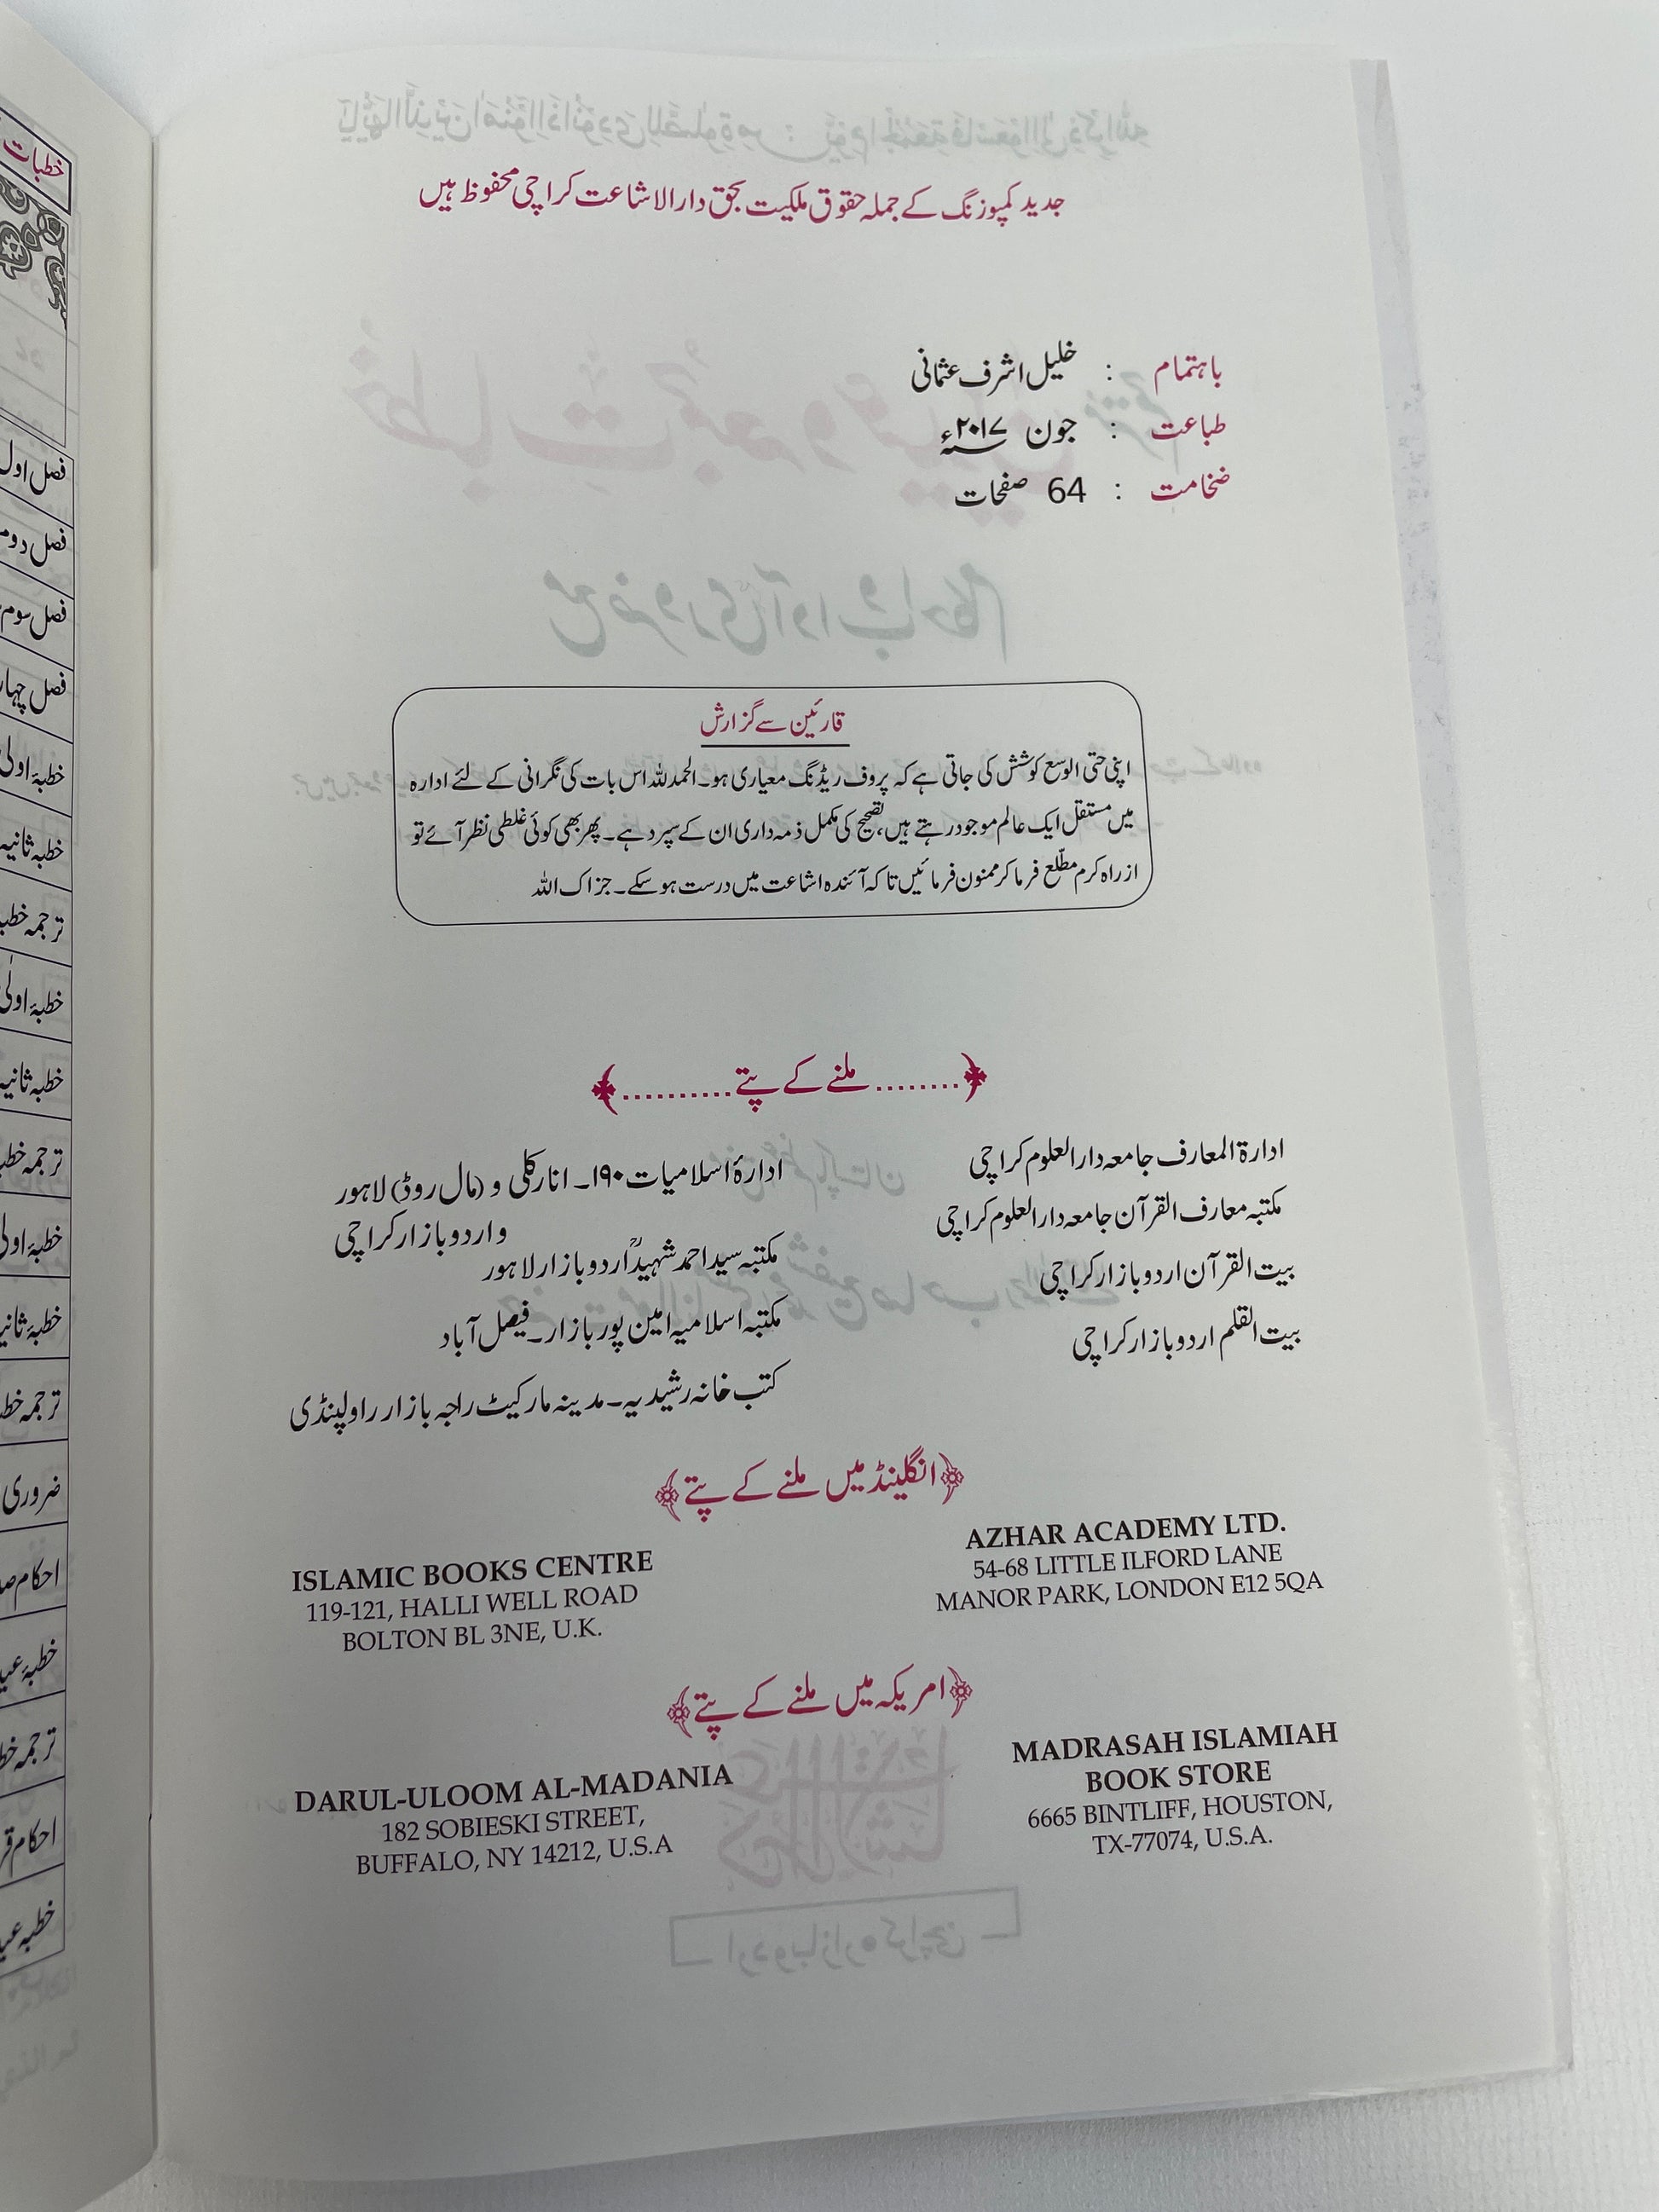 جدید کمپوزنگ کے جملہ حقوق ملکیت بحق دارالاشاعت کراچی محفوظ ہیں
باہتمام : خلیل اشرف عثمانی
طباعت : جون ۲۰۱۷ء
ضخامت : 64 صفحات
قارئین سے گزارش
اپنی حتی الوسع کوشش کی جاتی ہے کہ پروف ریڈنگ معیاری ہو۔ الحمدللہ اس بات کی نگرانی کے لئے ادارہ
میں مستقل ایک عالم موجود رہتے ہیں، تصحیح کی مکمل ذمہ داری ان کے سپرد ہے۔ پھر بھی کوئی غلطی نظر آئے تو
از راہ کرم مطلع فرما کر ممنون فرمائیں تاکہ آئندہ اشاعت میں درست ہو سکے۔ جزاک اللہ
ملنے کے پتے
ادارۃ المعارف جامعہ دارالعلوم کراچی
مکتبہ معارف القرآن جامعہ دارالعلوم کراچی
بیت القرآن اردو بازار کراچی
بیت القلم اردو بازار کراچی
ادارۂ اسلامیات ۱۹۰۔ انارکلی و (مال روڈ) لاہور
و اردو بازار کراچی
مکتبہ سید احمد شہیدؒ اردو بازار لاہور
مکتبہ اسلامیہ امین پور بازار۔ فیصل آباد
کتب خانہ رشیدیہ۔ مدینہ مارکیٹ راجہ بازار راولپنڈی
انگلینڈ میں ملنے کے پتے
AZHAR ACADEMY LTD.
54-68 LITTLE ILFORD LANE
MANOR PARK, LONDON E12 5QA
ISLAMIC BOOKS CENTRE
119-121, HALLI WELL ROAD
BOLTON BL 3NE, U.K.
امریکہ میں ملنے کے پتے
MADRASAH ISLAMIAH
BOOK STORE
6665 BINTLIFF, HOUSTON,
TX-77074, U.S.A.
DARUL-ULOOM AL-MADANIA
182 SOBIESKI STREET,
BUFFALO, NY 14212, U.S.A
خطبات
فصل اول
فصل دوم
فصل سوم
خطبۂ اولی
خطبہ ثانیہ
ترجمہ
خطبۂ اولی
خطبہ ثانیہ
ترجمہ
خطبۂ اولی
خطبۂ ثانیہ
ترجمہ
ضروری
احکام
خطبۂ
ترجمہ
احکام
خطبہ